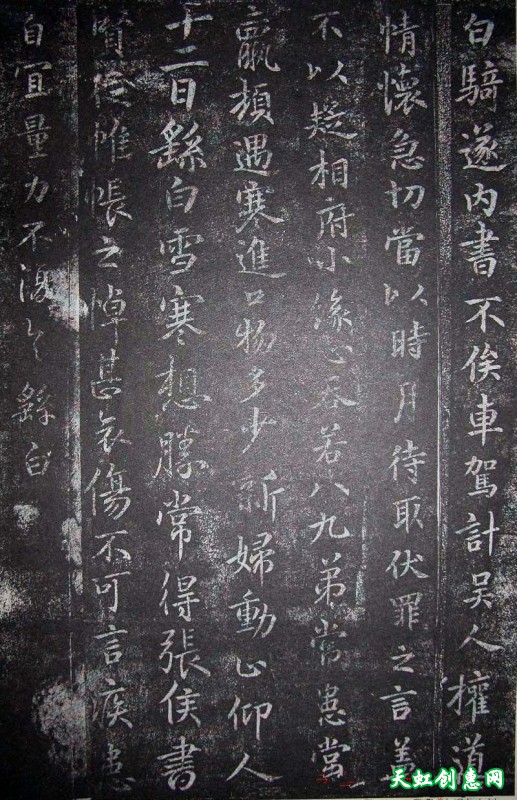 白騎遂內書不俟車駕計吳人權道
情懷急切當以時月待取伏罪之言盖
不以疑相府小緣心吞若八九弟常患常
羸頓遇寒進口物多少新婦動止仰人
十二日繇白雪寒想勝常得張侯書
賢從帷帳之悼甚哀傷不可言疾患
自宜量力不復 繇白
天虹创惠网